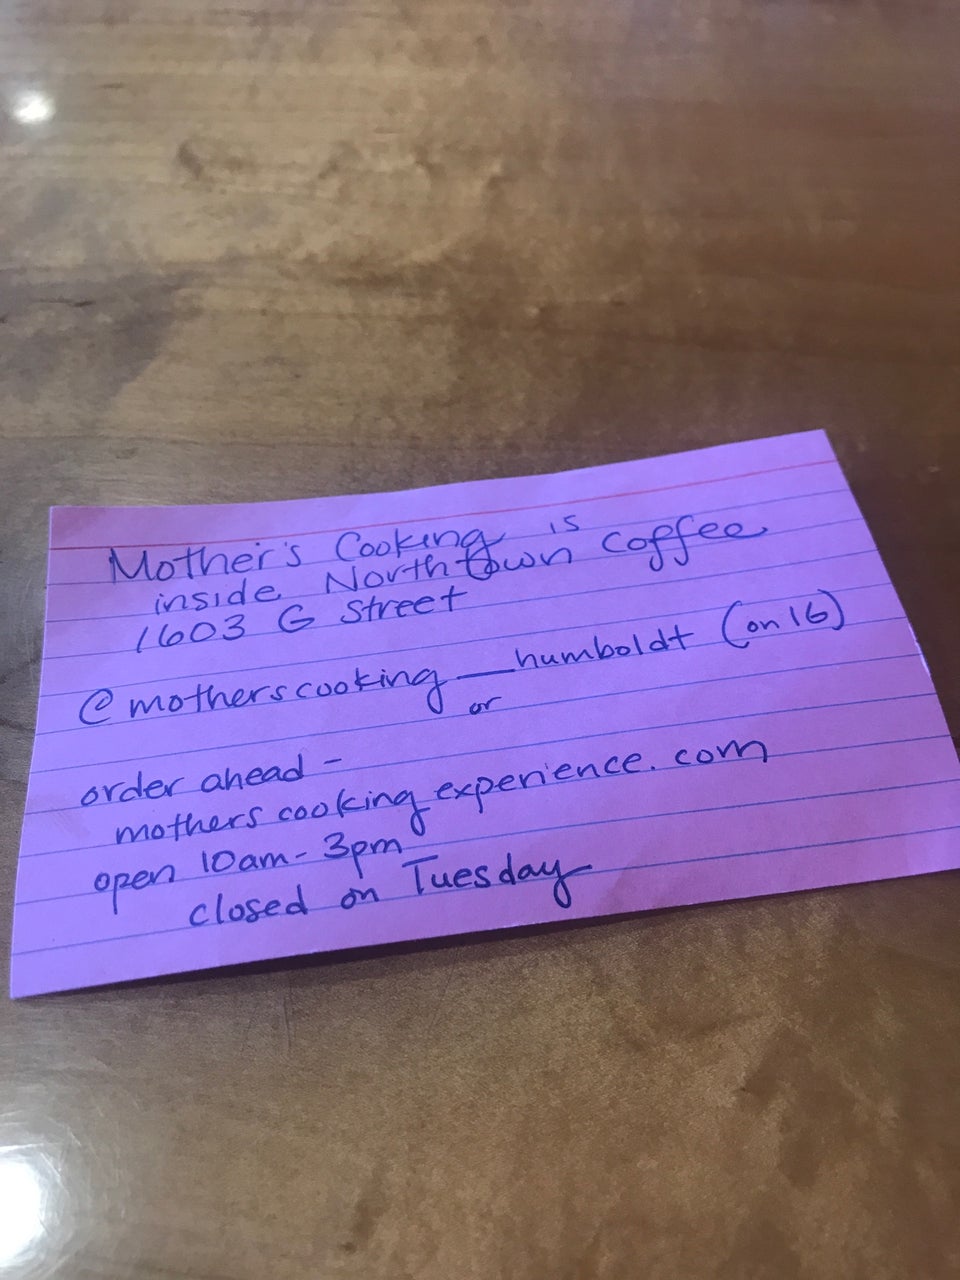 Mother's Cooking is
inside Northtown Coffee
1603 G Street
@motherscooking__humboldt (on 16)
or
order ahead -
mothers cooking experience.com
open 10am - 3pm
closed on Tuesday